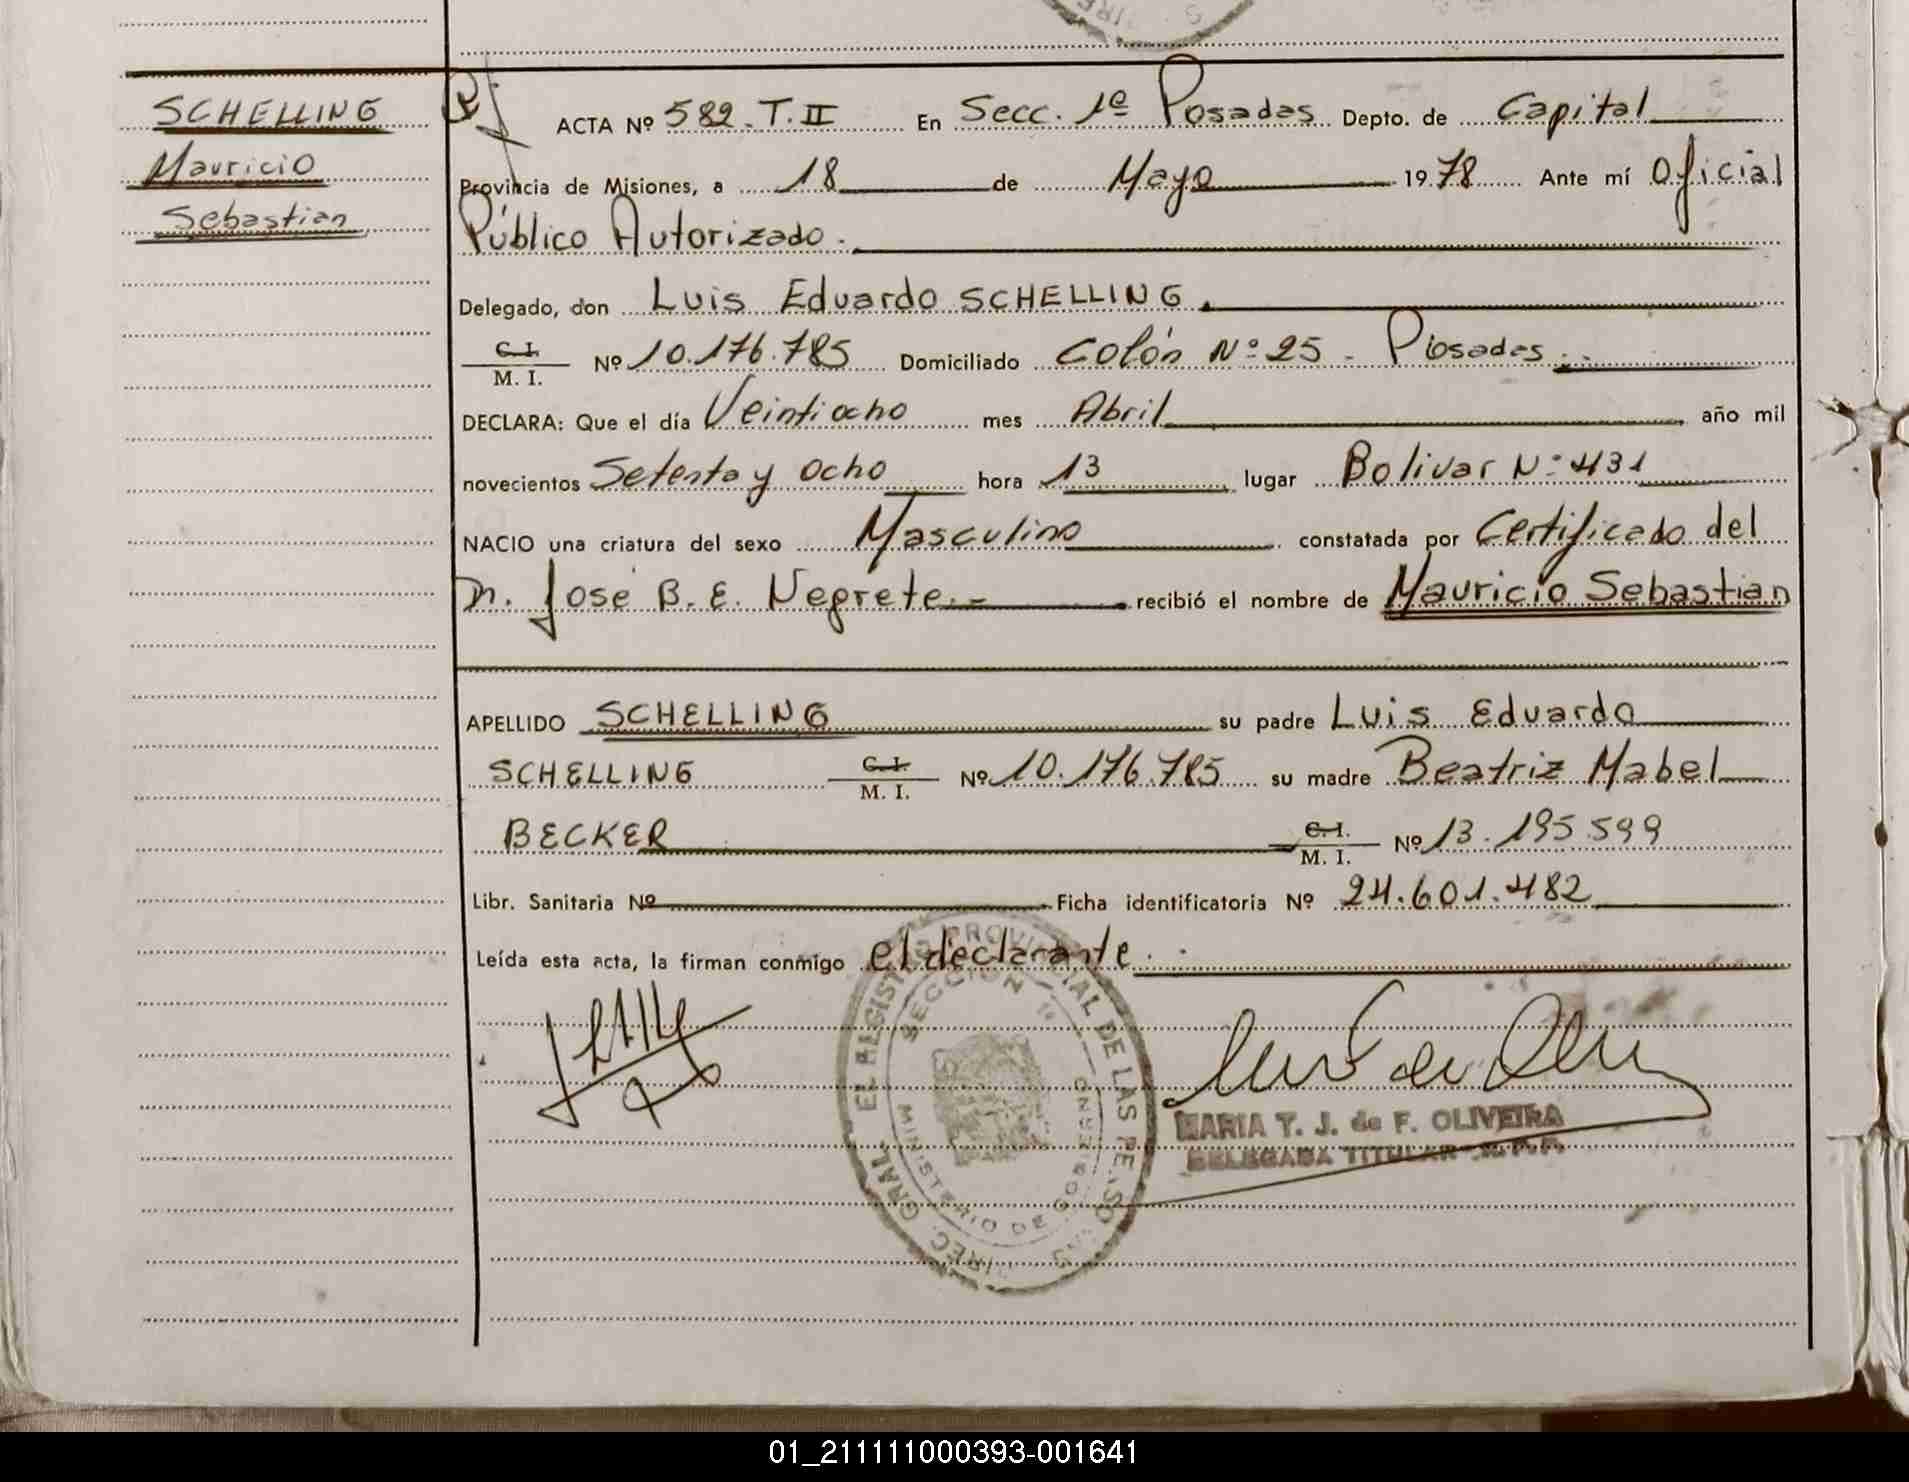 SCHELLING
Mauricio
Sebastian
ACTA Nº 582. T. II En Secc. 1ª Posadas Depto. de Capital
Provincia de Misiones, a 18 de Mayo 1978 Ante mí Oficial
Público Autorizado.
Delegado, don Luis Eduardo SCHELLING.
C. I.
M. I. Nº 10.176.785 Domiciliado Colón Nº 25 - Posadas.
DECLARA: Que el día Veintiocho mes Abril año mil
novecientos Setenta y Ocho hora 13 lugar Bolivar Nº 431
NACIO una criatura del sexo Masculino constatada por Certificado del
Dr. José B. E. Negrete.- recibió el nombre de Mauricio Sebastian
APELLIDO SCHELLING su padre Luis Eduardo
SCHELLING C. I. M. I. Nº 10.176.785 su madre Beatriz Mabel
BECKER C. I. M. I. Nº 13.195.599
Libr. Sanitaria Nº Ficha identificatoria Nº 24.601.482
Leída esta acta, la firman conmigo el declarante.
MINISTERIO DE GOBIERNO
SECCION 1a
MARIA T. J. de F. OLIVEIRA
DELEGADA TITULAR
01_211111000393-001641